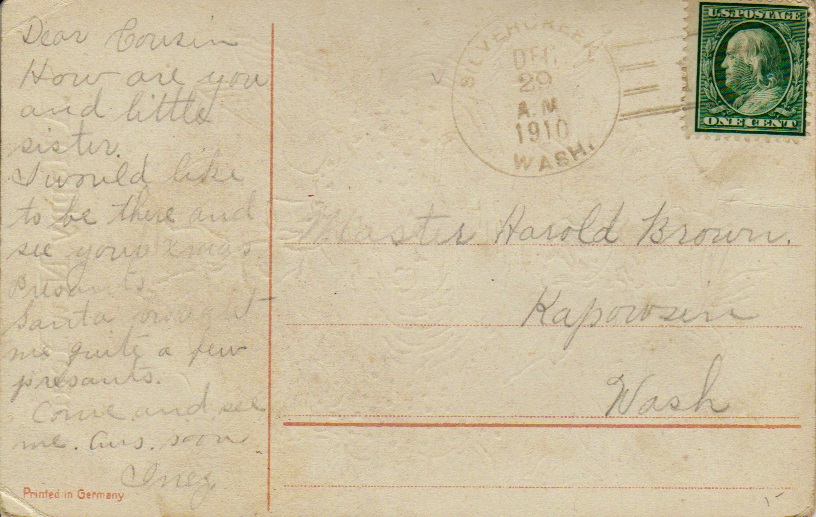 Dear Cousin
How are you
and little
sister.
I would like
to be there and
see your xmas
Presants.
Santa brought
me quite a few
presants.
Come and see
me. Ans. soon
Inez
Printed in Germany
SILVERCREEK
DEC
29
A.M.
1910
WASH.
U.S. POSTAGE
ONE CENT
Master Harold Brown.
Kapowsin
Wash